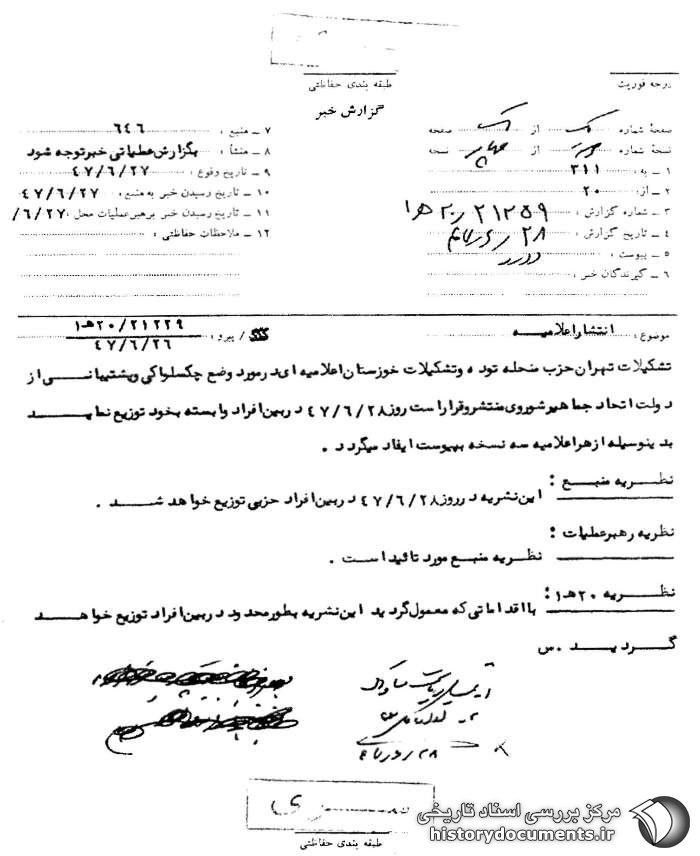 طبقه بندی حفاظتی
درجه فوریت
گزارش خبر
صفحهٔ شماره از صفحه
نسخهٔ شماره از چهار نسخه
۱ ـ به : ۳۱۱
۲ ـ از : ۲۰
۳ ـ شماره گزارش : ۲۱۲۵۹ / ۲۰ ه‍ ۱
۴ ـ تاریخ گزارش : ۲۸
۵ ـ پیوست :
۶ ـ گیرندگان خبر :
۷ ـ منبع : ۶۴۶
۸ ـ منشأ : بگزارش عملیاتی خبر توجه شود
۹ ـ تاریخ وقوع : ۴۷/۶/۲۷
۱۰ ـ تاریخ رسیدن خبر به منبع : ۴۷/۶/۲۷
۱۱ ـ تاریخ رسیدن خبر برهبر عملیات محل : /۶/۲۷
۱۲ ـ ملاحظات حفاظتی :
موضوع : انتشار اعلامیه
/ پیرو : ۲۰/۲۱۲۲۹ هـ ۱
۴۷/۶/۲۶
تشکیلات تهران حزب منحله توده و تشکیلات خوزستان اعلامیه ای در مورد وضع چکسلواکی و پشتیبانی از
دولت اتحاد جماهیر شوروی منتشر و قرار است روز ۴۷/۶/۲۸ در بین افراد وابسته بخود توزیع نماید
بدینوسیله از هر اعلامیه سه نسخه بپیوست ایفاد میگردد .
نظریه منبع : این نشریه در روز ۴۷/۶/۲۸ در بین افراد حزبی توزیع خواهد شد .
نظریه رهبر عملیات :
نظریه منبع مورد تائید است .
نظریه ۲۰ هـ ۱ : با اقداماتی که معمول گردید این نشریه بطور محدود در بین افراد توزیع خواهد
گردید . س
طبقه بندی حفاظتی
مرکز بررسی اسناد تاریخی
historydocuments.ir